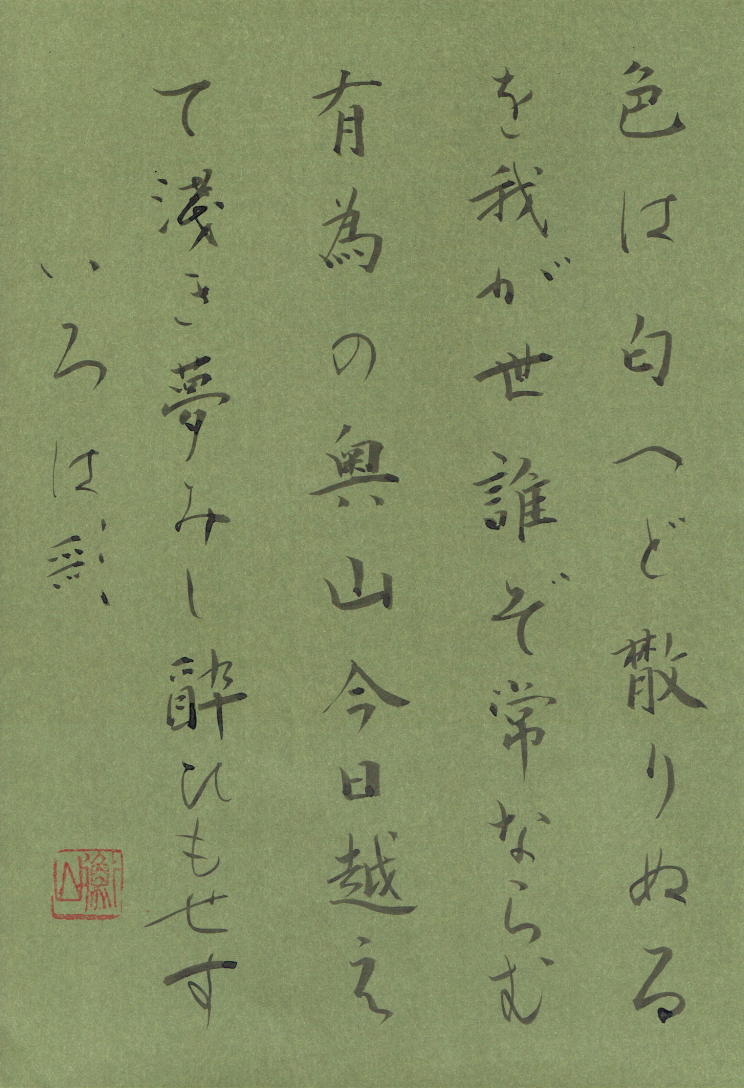 色は匂へど散りぬる
を我が世誰ぞ常ならむ
有為の奥山今日越え
て浅き夢みし酔ひもせす
いろは